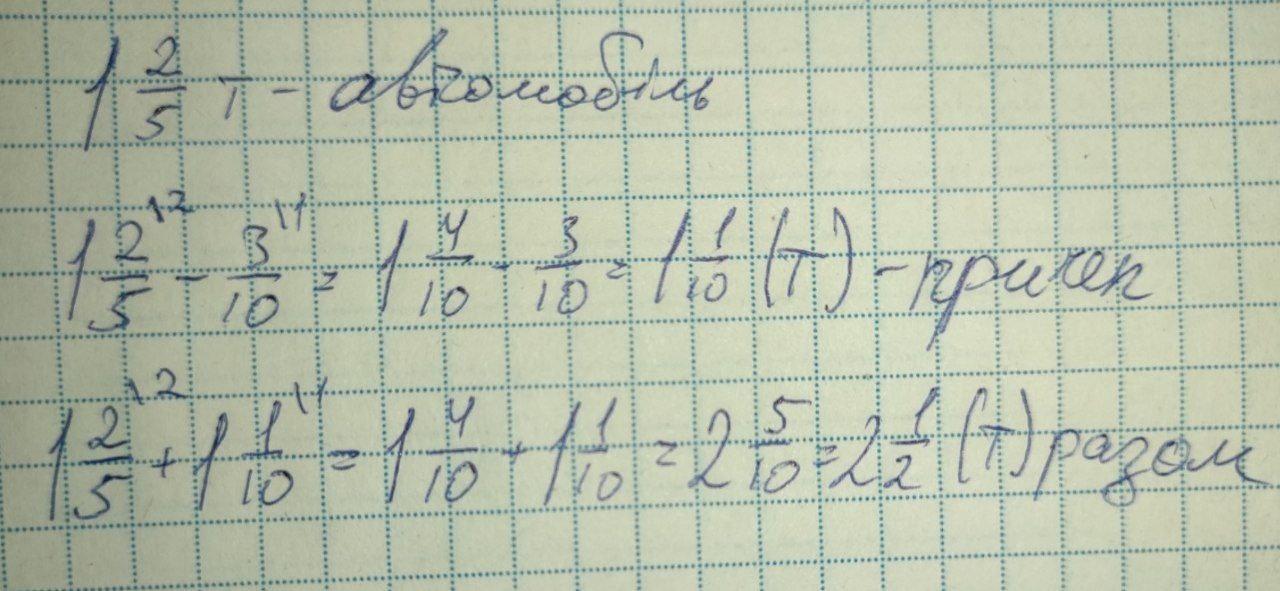 1 2/5 т - автомобіль
1 2/5 \2 - 3/10 \1 = 1 4/10 - 3/10 = 1 1/10 (т) - причеп
1 2/5 \2 + 1 1/10 \1 = 1 4/10 + 1 1/10 = 2 5/10 = 2 1/2 (т) разом